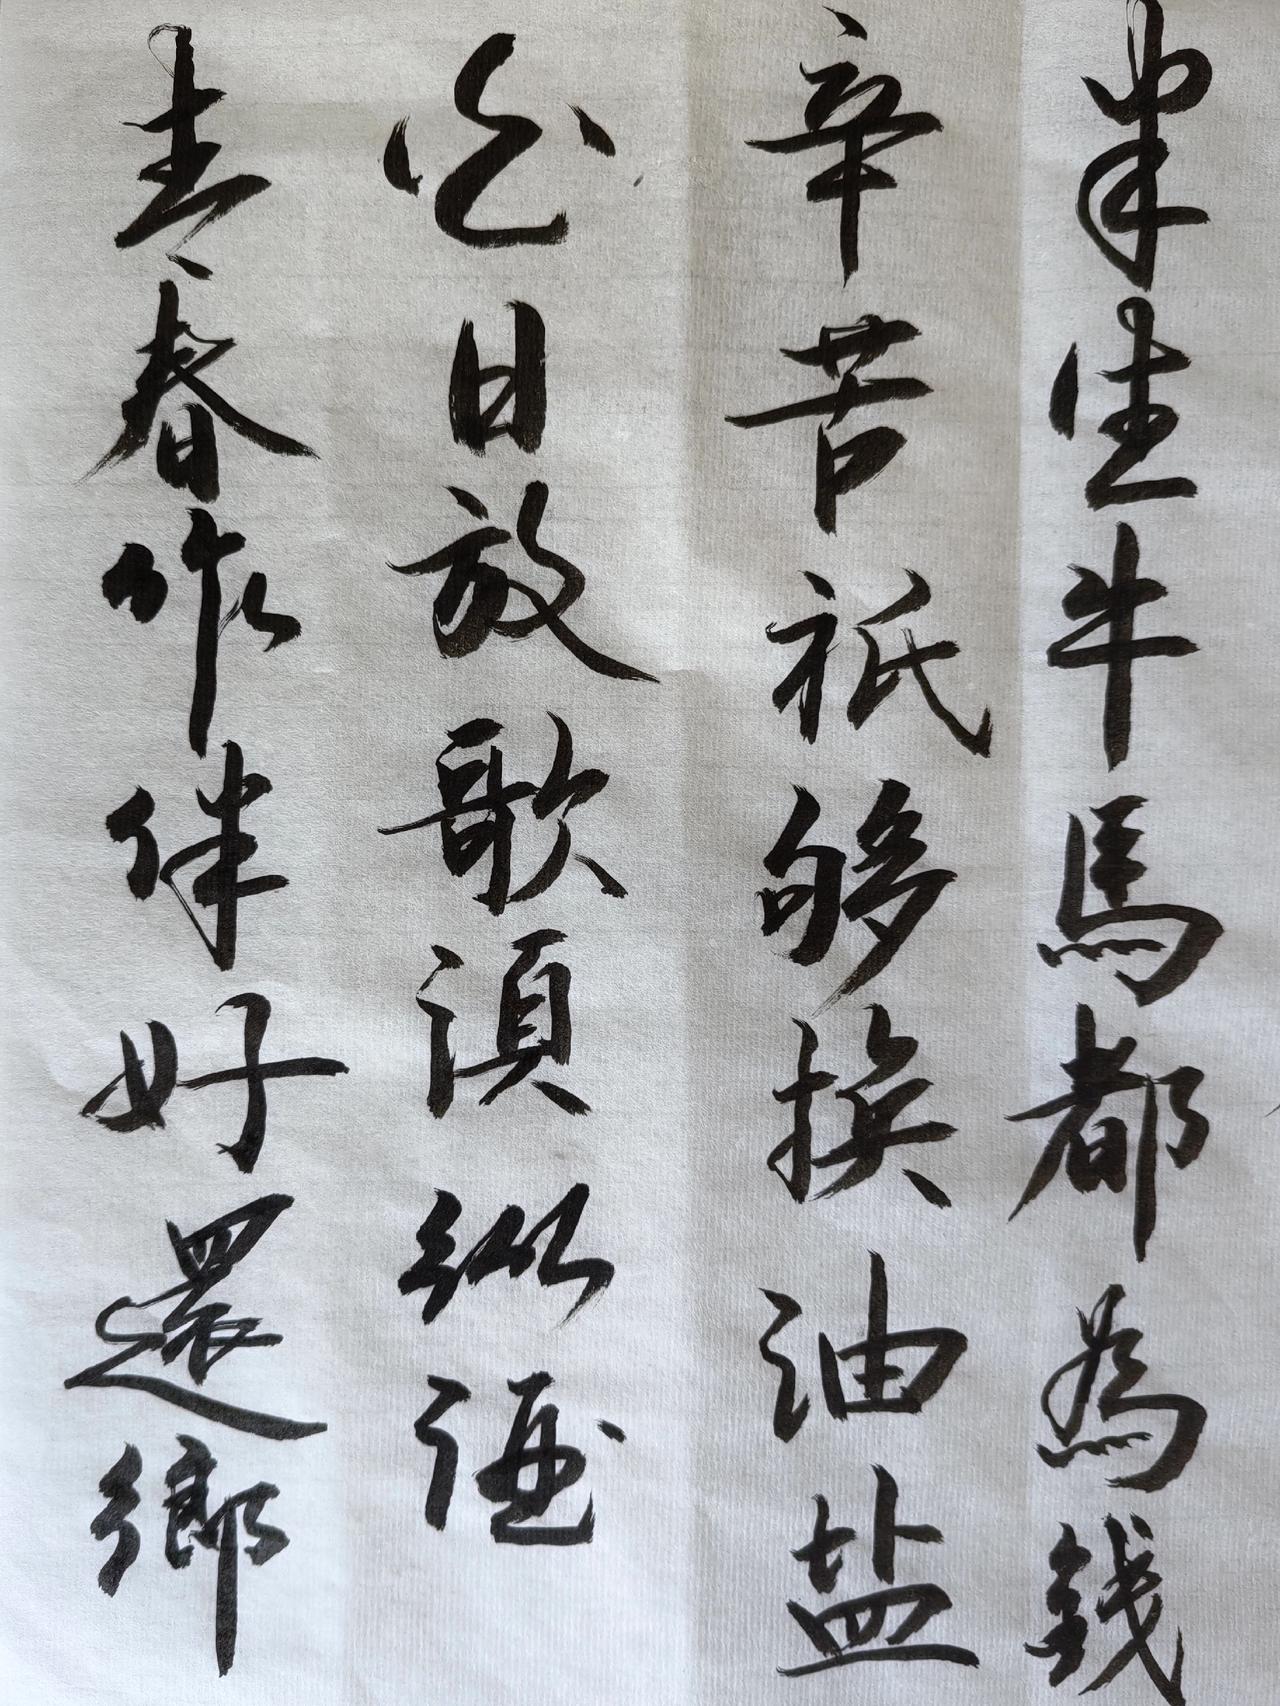 半生牛馬都為錢
辛苦祇够换油盐
白日放歌須縱酒
青春作伴好還鄉